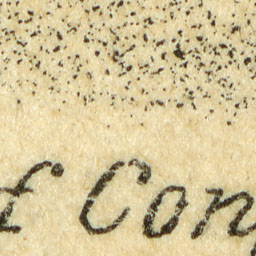 f Con